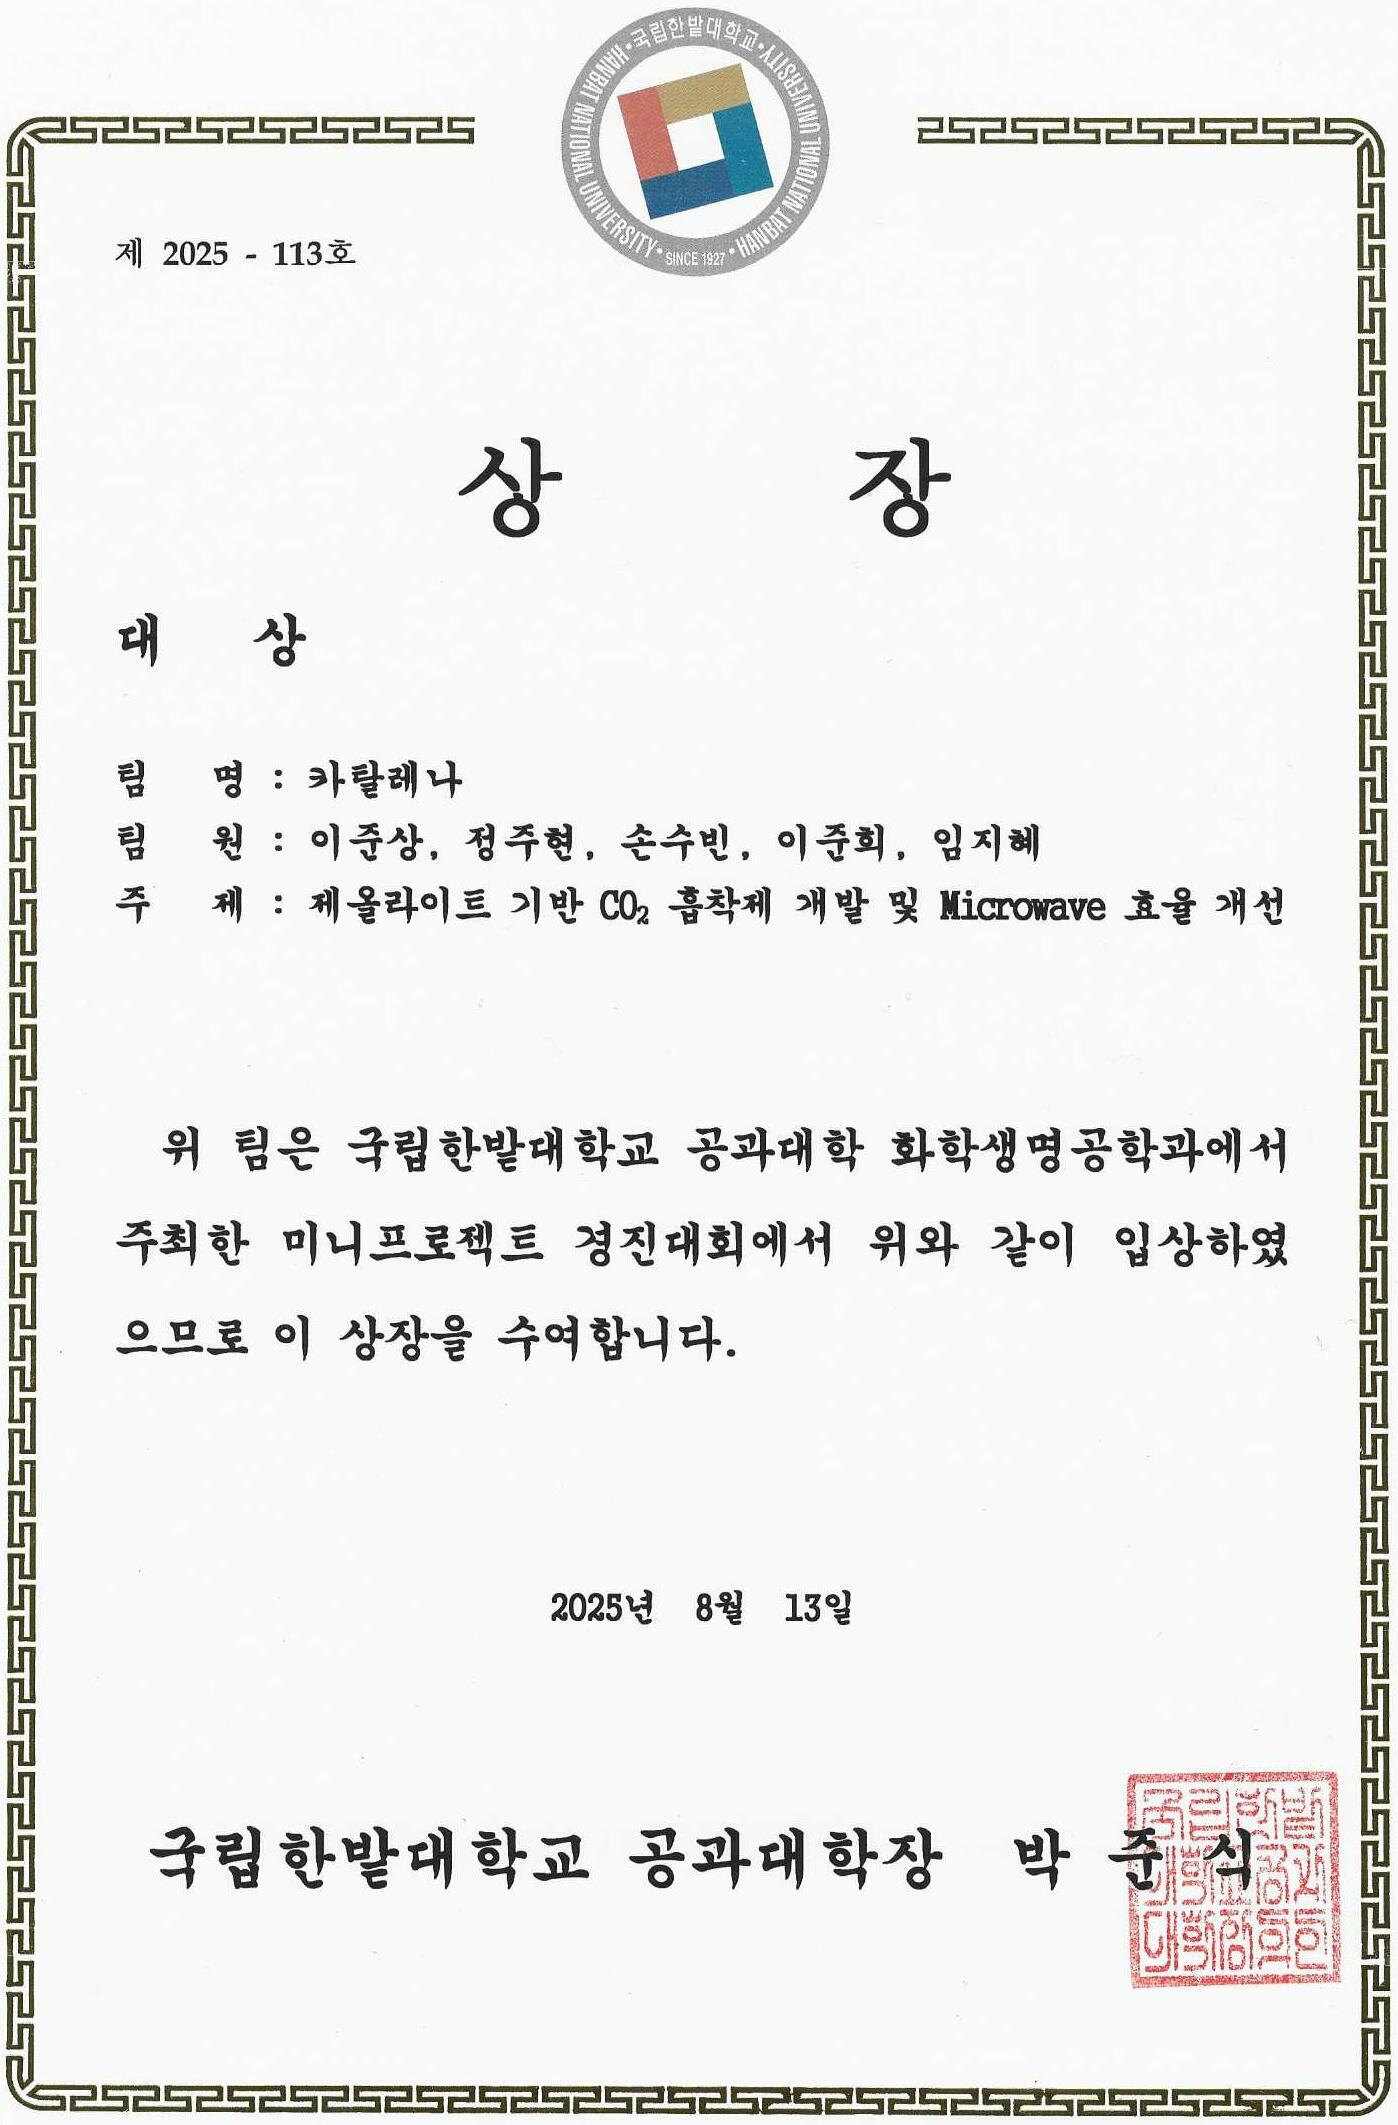 국립한밭대학교
HANBAT NATIONAL UNIVERSITY
HANBAT NATIONAL UNIVERSITY
SINCE 1927
제 2025 - 113호
상 장
대 상
팀 명 : 카탈레나
팀 원 : 이준상, 정주현, 손수빈, 이준희, 임지혜
주 제 : 제올라이트 기반 CO₂ 흡착제 개발 및 Microwave 효율 개선
위 팀은 국립한밭대학교 공과대학 화학생명공학과에서
주최한 미니프로젝트 경진대회에서 위와 같이 입상하였
으므로 이 상장을 수여합니다.
2025년 8월 13일
국립한밭대학교 공과대학장 박 준 식
국립한밭
대학교공과
대학장